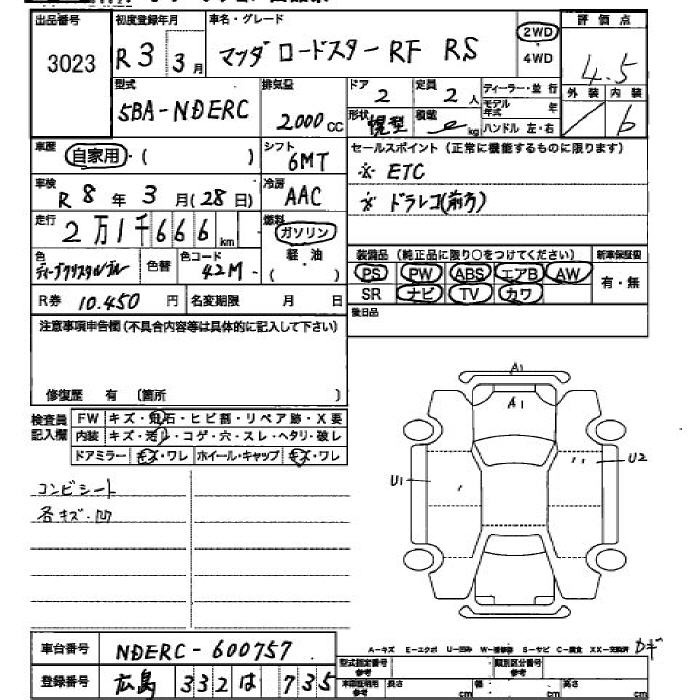 出品番号 初度登録年月 車名・グレード 2WD 評価点
3023 R3 3月 マツダ ロードスターRF RS ・4WD 4.5
型式 排気量 ドア 定員 ディーラー・並行 外装 内装
5BA-NDERC 2000cc 2 2人 モデル年式 年 / b
形状 幌型 積載 kg ハンドル 左・右
車歴 シフト セールスポイント(正常に機能するものに限ります)
自家用・( ) 6MT ※ ETC
車検 冷房
R8年3月(28日) AAC ※ ドラレコ(前方)
走行 燃料
2万1千666km ガソリン
色 色替 色コード 軽・油 装備品(純正品に限り○をつけてください) 新車保証書
ディープクリスタルブルー 42M ( ) PS PW ABS エアB AW 有・無
R券 10.450円 名変期限 月 日 SR ナビ TV カワ
注意事項申告欄(不具合内容等は具体的に記入して下さい) 後日品
修復歴 有 〔箇所 〕
検査員記入欄 FW キズ・飛石・ヒビ割・リペア跡・X要
内装 キズ・汚レ・コゲ・穴・スレ・ヘタリ・破レ
ドアミラー キズ・ワレ ホイール・キャップ キズ・ワレ
A1
A1
U1 U2
コンビシート
各キズ・凹
車台番号 NDERC-600757
A-キズ E-エクボ U-凹み W-補修跡 S-サビ C-腐食 XX-交換済 カギ
登録番号 広島 332 は 735
型式指定番号 参考 類別区分番号 参考
車体証明用 参考 長さ cm 幅 cm 高さ cm